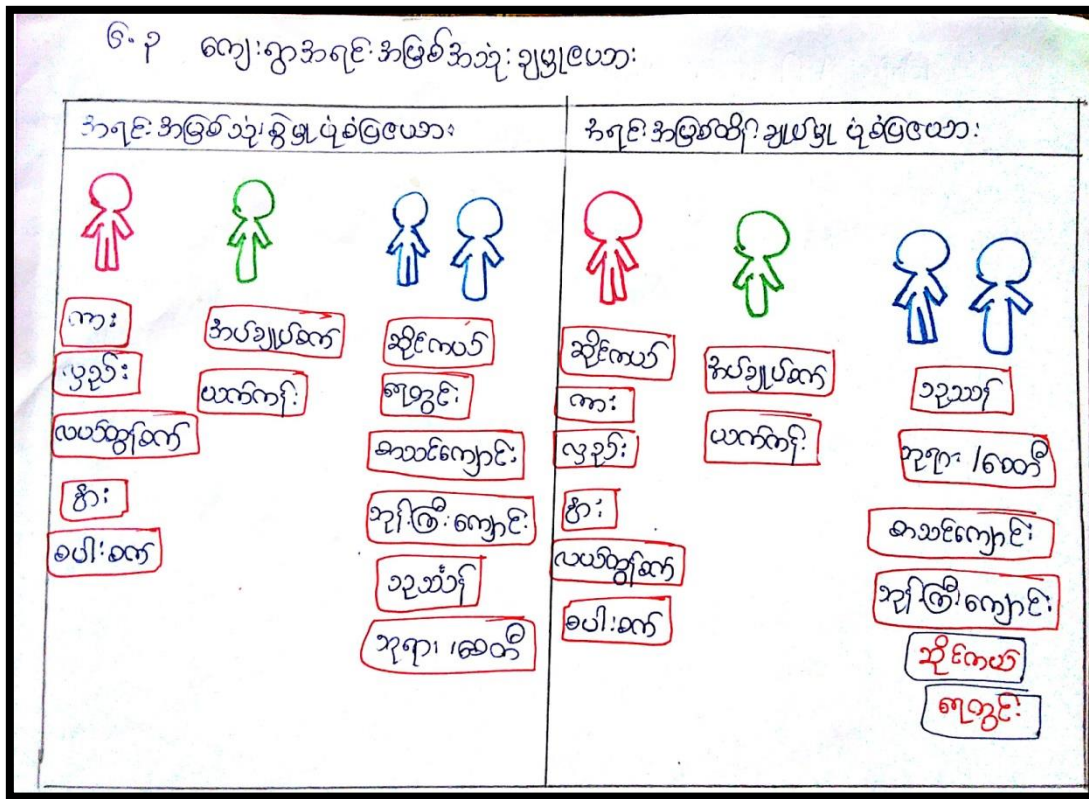 ၆-၃ ကျေးရွာအရင်းအမြစ်အသုံးချမှုဇယား
အရင်းအမြစ်သုံးစွဲမှု ပုံစံပြဇယား
ကား
လှည်း
လယ်ထွန်စက်
နွား
စပါးစက်
အပ်ချုပ်စက်
ယက်ကန်း
ဆိုင်ကယ်
ရေတွင်း
စာသင်ကျောင်း
ဘုန်းကြီးကျောင်း
သုဿာန်
ဘုရား/စေတီ
အရင်းအမြစ်ထိန်းချုပ်မှု ပုံစံပြဇယား
ဆိုင်ကယ်
ကား
လှည်း
နွား
လယ်ထွန်စက်
စပါးစက်
အပ်ချုပ်စက်
ယက်ကန်း
သုဿာန်
ဘုရား/စေတီ
စာသင်ကျောင်း
ဘုန်းကြီးကျောင်း
ဆိုင်ကယ်
ရေတွင်း